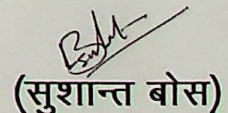 (सुशान्त बोस)